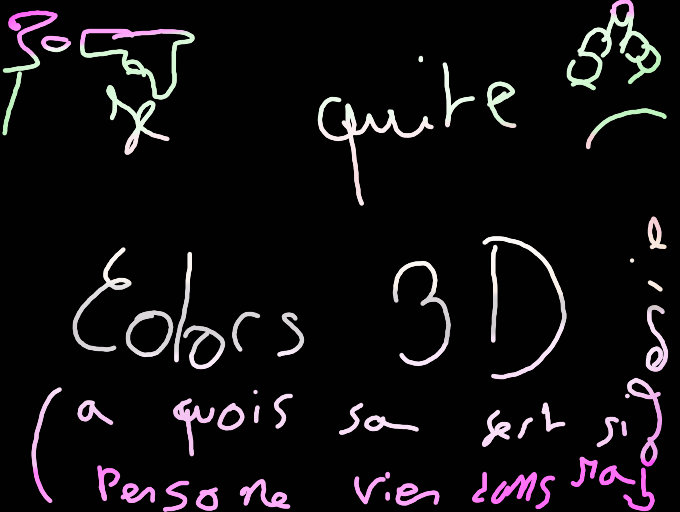 je quite
Colors 3D
(a quois sa sert si
persone vien dans ma